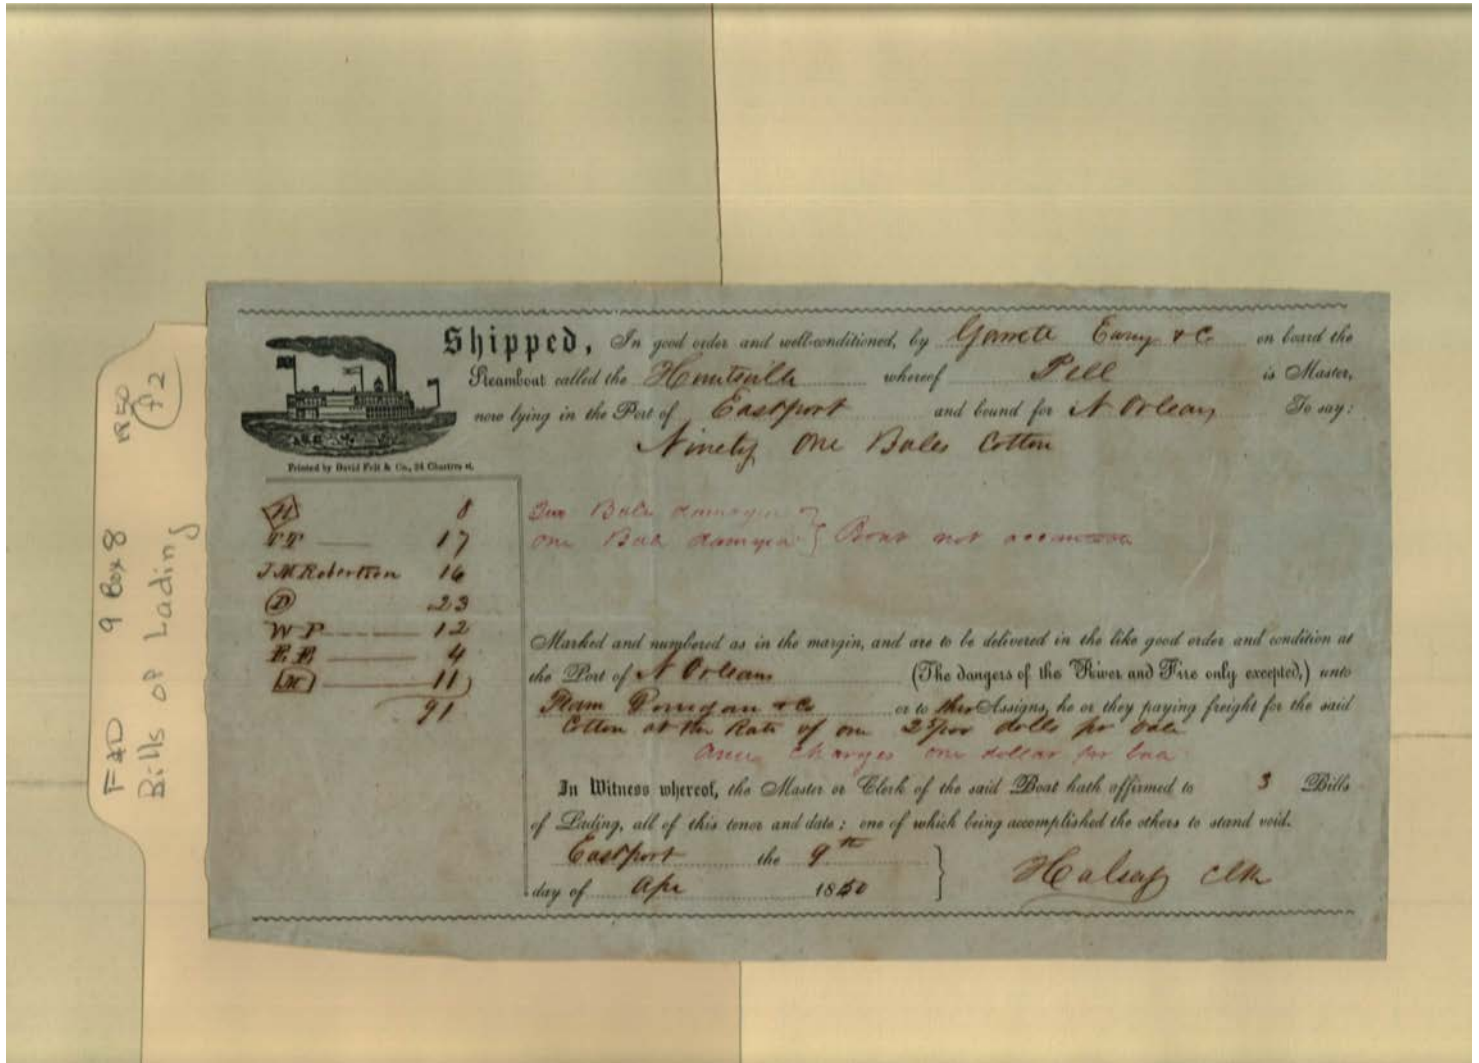 1850
f2
F&D 9 Box 8
Bills of Lading
Shipped, In good order and well-conditioned, by on board the
Steamboat called the Huntsville whereof Pell is Master,
now lying in the Port of Eastport and bound for N Orleans To say:
Ninety One Bales Cotton
Printed by David Felt & Co., 24 Chartres st.
H 8
17
J M Robertson 16
D 23
W P 12
4
M 11
91
Bale
one Bale Boat not
Marked and numbered as in the margin, and are to be delivered in the like good order and condition at
the Port of N Orleans (The dangers of the River and Fire only excepted,) unto
& Co or to Assigns, he or they paying freight for the said
Cotton at the Rate of one 25/100 dolls pr bale
Charges one dollar pr bale
In Witness whereof, the Master or Clerk of the said Boat hath affirmed to 3 Bills
of Lading, all of this tenor and date: one of which being accomplished the others to stand void.
Eastport the 9th
day of Apr 1850
Halsey Clk